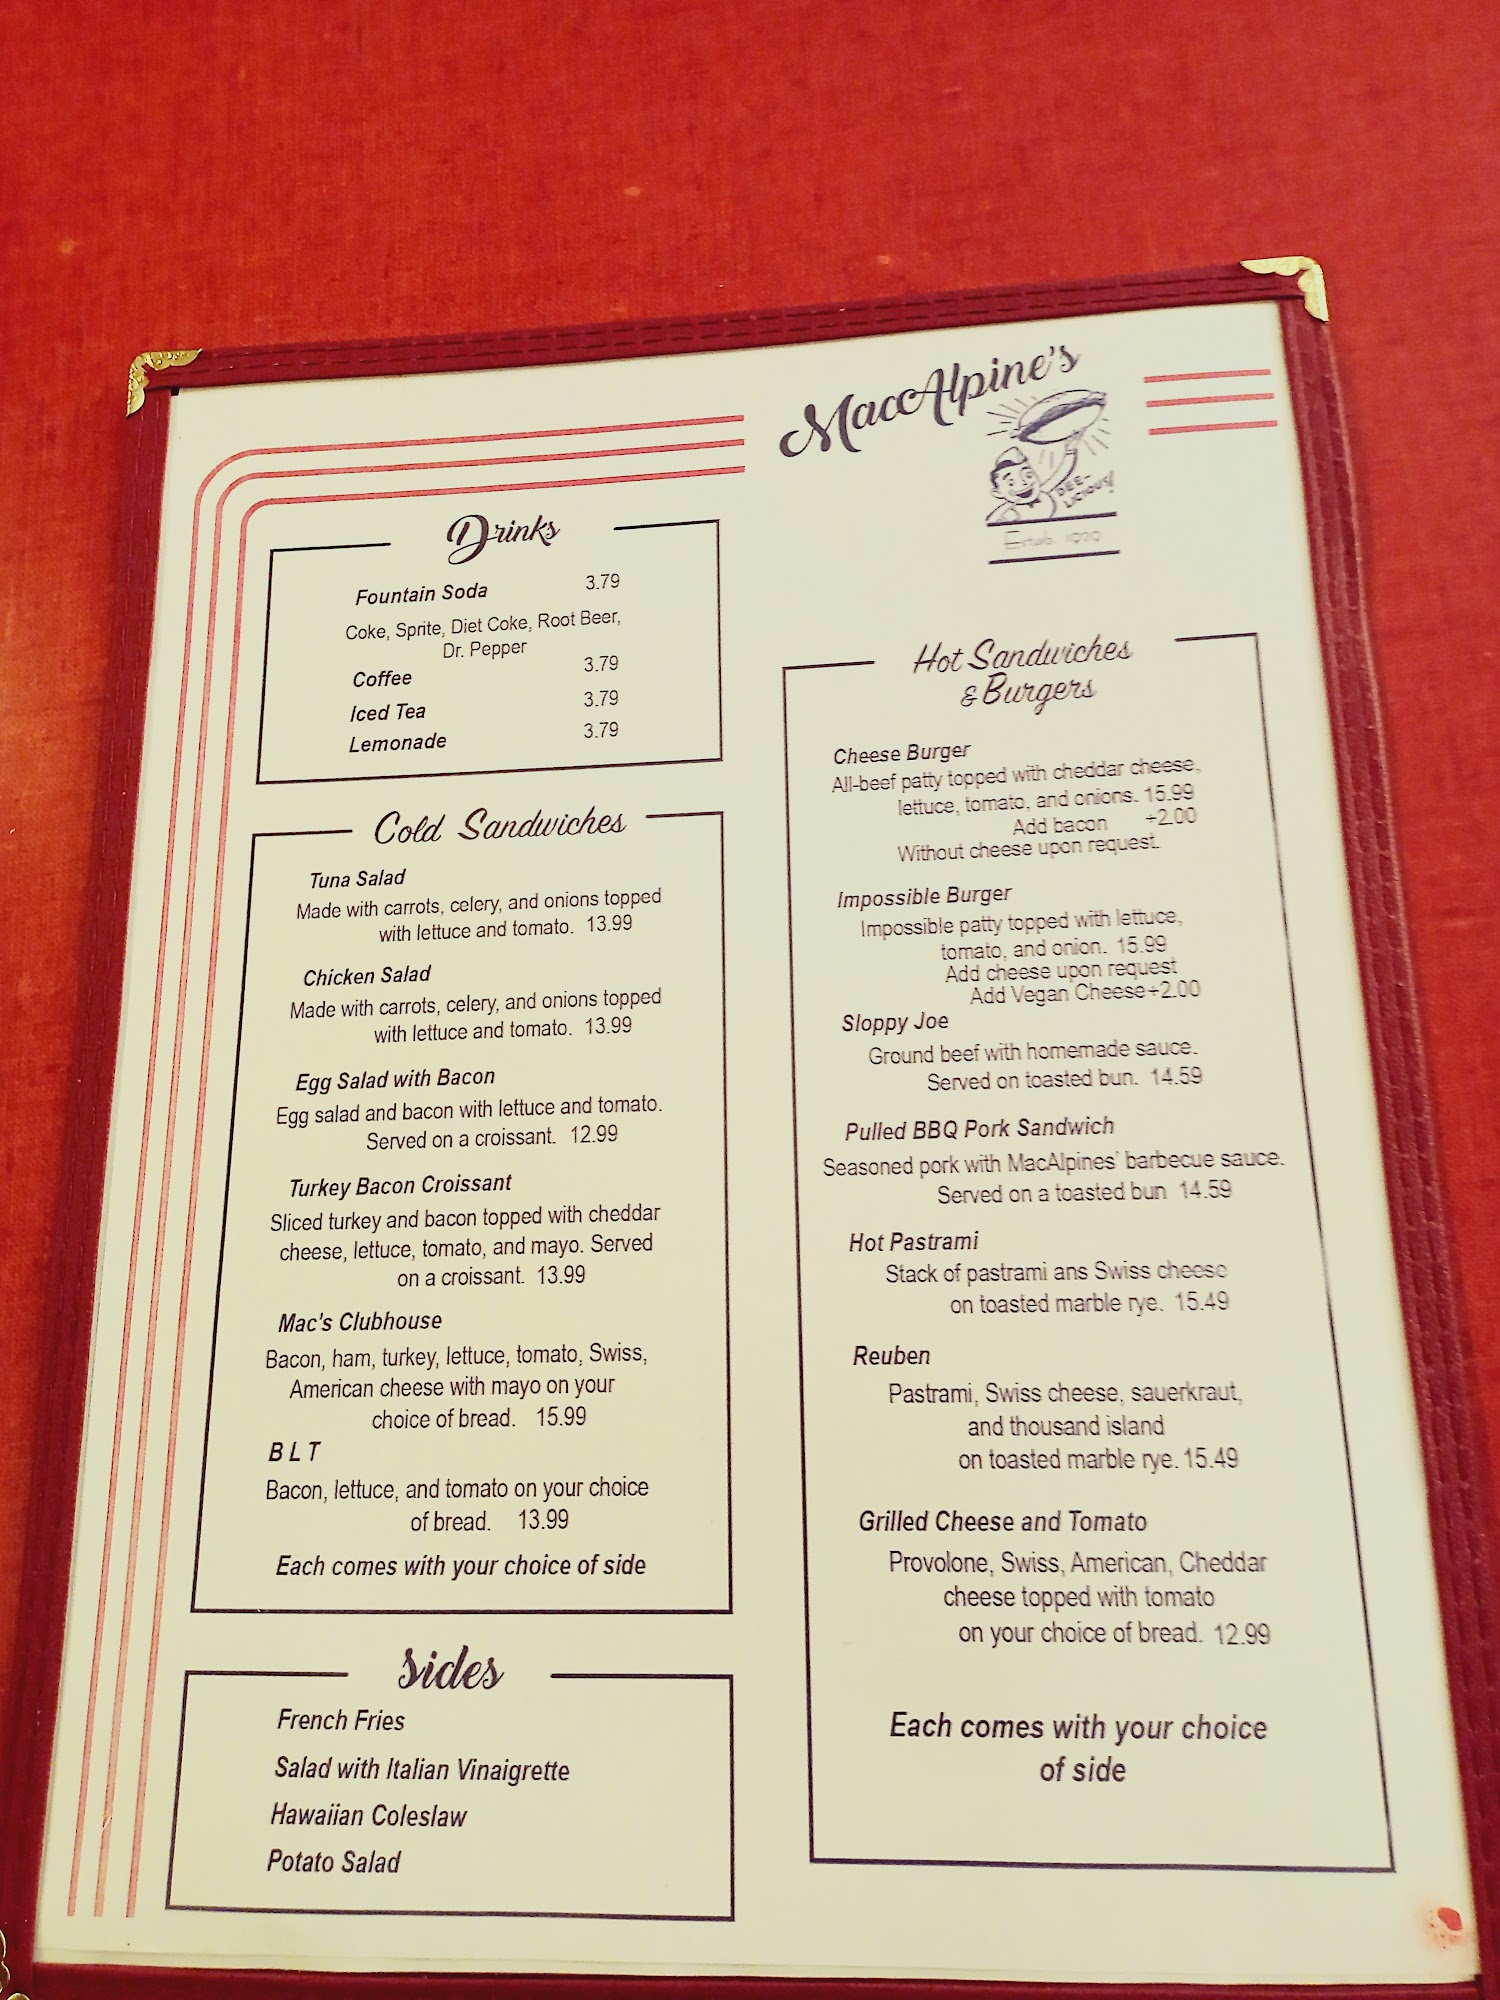 MacAlpine's
DEE-
LICIOUS!
Estab. 1929
Drinks
Fountain Soda 3.79
Coke, Sprite, Diet Coke, Root Beer,
Dr. Pepper
Coffee 3.79
Iced Tea 3.79
Lemonade 3.79
Cold Sandwiches
Tuna Salad
Made with carrots, celery, and onions topped
with lettuce and tomato. 13.99
Chicken Salad
Made with carrots, celery, and onions topped
with lettuce and tomato. 13.99
Egg Salad with Bacon
Egg salad and bacon with lettuce and tomato.
Served on a croissant. 12.99
Turkey Bacon Croissant
Sliced turkey and bacon topped with cheddar
cheese, lettuce, tomato, and mayo. Served
on a croissant. 13.99
Mac's Clubhouse
Bacon, ham, turkey, lettuce, tomato, Swiss,
American cheese with mayo on your
choice of bread. 15.99
B L T
Bacon, lettuce, and tomato on your choice
of bread. 13.99
Each comes with your choice of side
Sides
French Fries
Salad with Italian Vinaigrette
Hawaiian Coleslaw
Potato Salad
Hot Sandwiches
& Burgers
Cheese Burger
All-beef patty topped with cheddar cheese,
lettuce, tomato, and onions. 15.99
Add bacon +2.00
Without cheese upon request.
Impossible Burger
Impossible patty topped with lettuce,
tomato, and onion. 15.99
Add cheese upon request
Add Vegan Cheese+2.00
Sloppy Joe
Ground beef with homemade sauce.
Served on toasted bun. 14.59
Pulled BBQ Pork Sandwich
Seasoned pork with MacAlpines' barbecue sauce.
Served on a toasted bun 14.59
Hot Pastrami
Stack of pastrami ans Swiss cheese
on toasted marble rye. 15.49
Reuben
Pastrami, Swiss cheese, sauerkraut,
and thousand island
on toasted marble rye. 15.49
Grilled Cheese and Tomato
Provolone, Swiss, American, Cheddar
cheese topped with tomato
on your choice of bread. 12.99
Each comes with your choice
of side